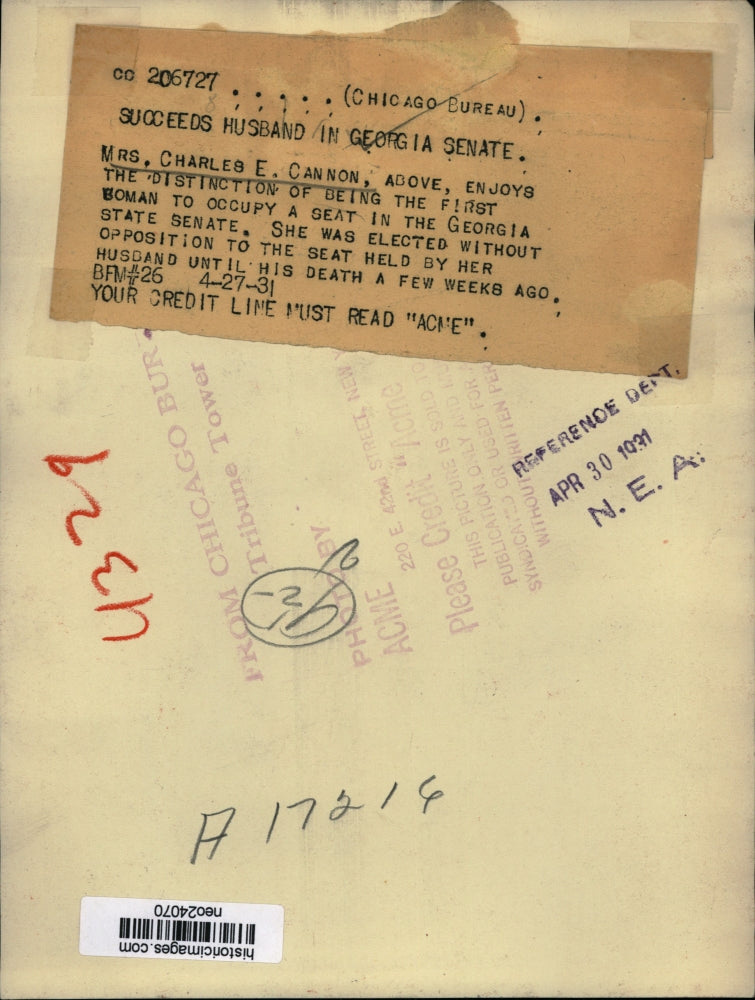 CC 206727 . . . . . (CHICAGO BUREAU).
SUCCEEDS HUSBAND IN GEORGIA SENATE.
MRS. CHARLES E. CANNON, ABOVE, ENJOYS
THE DISTINCTION OF BEING THE FIRST
WOMAN TO OCCUPY A SEAT IN THE GEORGIA
STATE SENATE. SHE WAS ELECTED WITHOUT
OPPOSITION TO THE SEAT HELD BY HER
HUSBAND UNTIL HIS DEATH A FEW WEEKS AGO.
BFM#26 4-27-31
YOUR CREDIT LINE MUST READ "ACME".
FROM CHICAGO BUR
Tribune Tower
PHOTO BY
ACME
220 E. 42nd STREET, NEW Y
Please Credit "Acme
THIS PICTURE IS SOLD TO
PUBLICATION ONLY AND
SYNDICATED OR USED FOR
WITHOUT WRITTEN PER
REFERENCE DEPT.
APR 30 1931
N. E. A.
A 17214
historicimages.com
neo24070